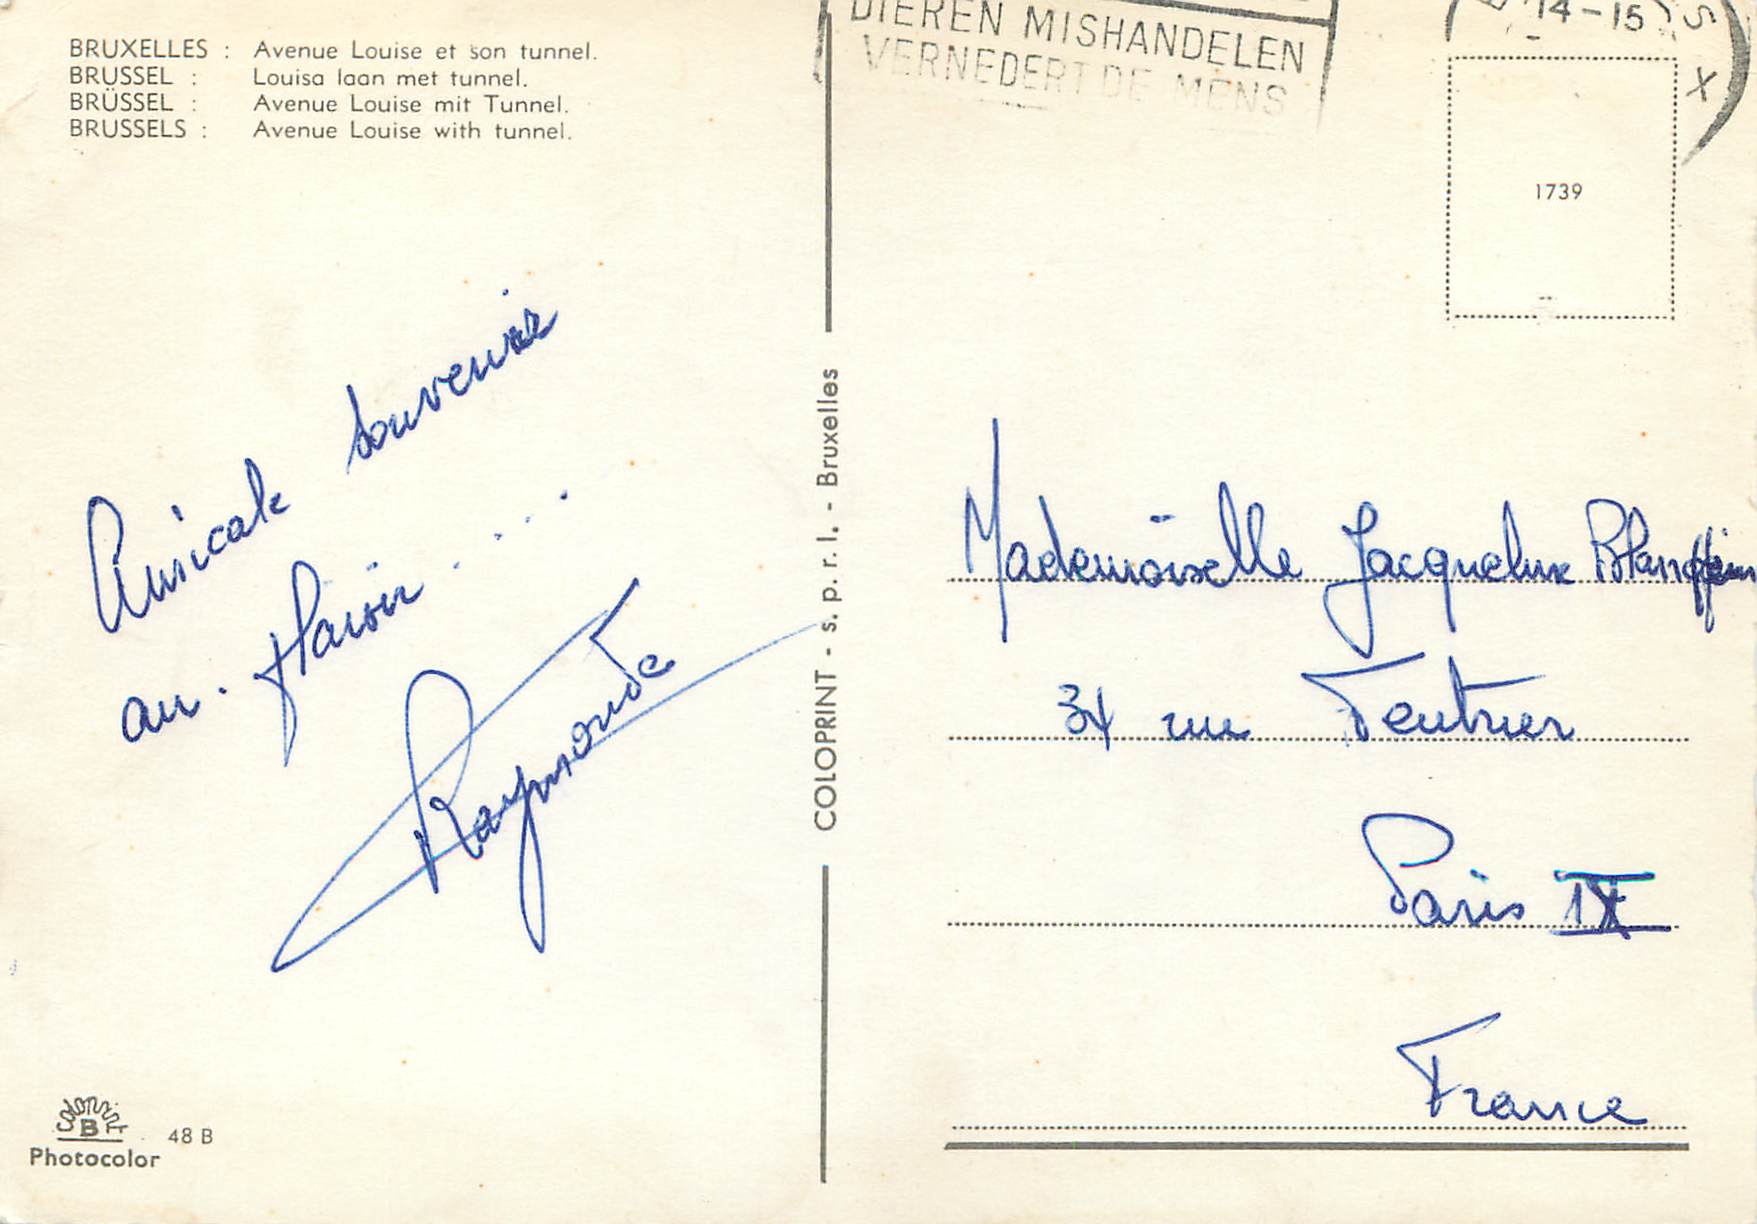 BRUXELLES : Avenue Louise et son tunnel.
BRUSSEL : Louisa laan met tunnel.
BRÜSSEL : Avenue Louise mit Tunnel.
BRUSSELS : Avenue Louise with tunnel.
Amicale souvenir
au
Raymonde
COLORPRINT B
48 B
Photocolor
COLOPRINT - s. p. r. l. - Bruxelles
DIEREN MISHANDELEN
VERNEDERT DE MENS
14-15
S
X
1739
Mademoiselle Jacqueline
34 rue Feutrier
Paris IX
France